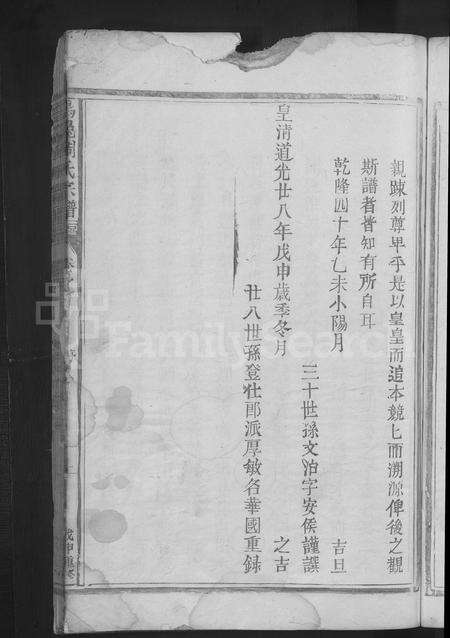 親踈列尊卑乎是以皇皇而追本兢兢而溯源俾後之觀
斯譜者皆知有所自耳
乾隆四十年乙未小陽月 吉旦
三十世孫文治字安侯謹譔
皇清道光廿八年戊申歲季冬月 之吉
廿八世孫登仕郎派厚敏名華國重錄
周氏宗譜
戊申重修
FamilySearch